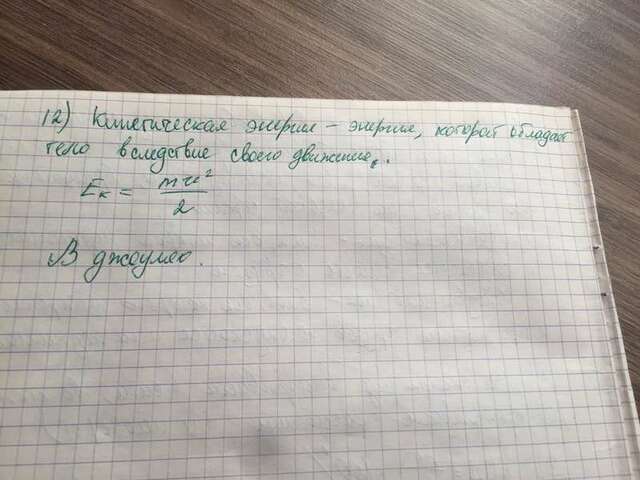 12) Кинетическая энергия – энергия, которой обладает
тело вследствие своего движения...
Eк = mv²/2
В джоулях.